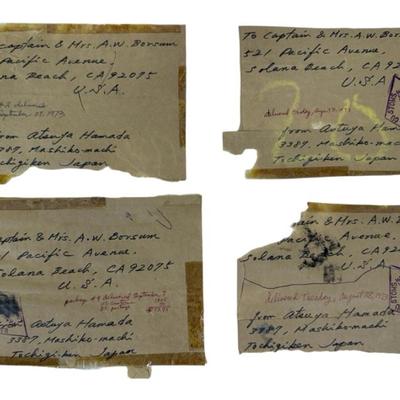 Captain & Mrs. A.W. Borsum
Pacific Avenue,
Solana Beach, CA 92075
U.S.A.
delivered
September 28, 1973
from Atsuya Hamada
3387, Mashiko-machi
Tochigiken Japan
To Captain & Mrs. A.W. Borsum
521 Pacific Avenue,
Solana Beach, CA 92075
U.S.A.
delivered
from Atsuya Hamada
3387, Mashiko-machi
Tochigiken Japan
Captain & Mrs. A.W. Borsum
Pacific Avenue,
Solana Beach, CA 92075
U.S.A.
package #4 delivered September
Atsuya Hamada
3387, Mashiko-machi
Tochigiken Japan
& Mrs. A.W.
Pacific Avenue
Solana Beach, CA
U.S.A.
delivered Tuesday, August 28, 1973
from Atsuya Hamada
3387, Mashiko-machi
Tochigiken Japan